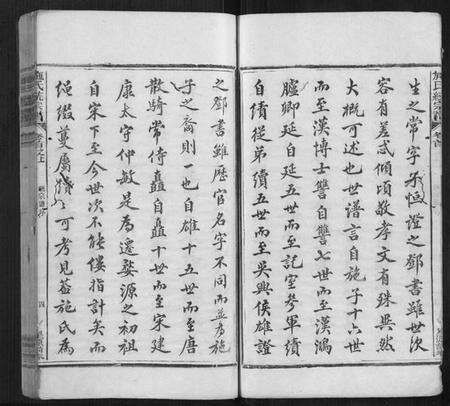 施氏統宗譜 卷首
生之常字子恒證之鄧書雖世次
容有差忒傾頃敬孝文有殊與然
大概可述也譜言自施子十六世
而至漢博士讐自讐七世而至漢鴻
臚卿延自延五世而至記室參軍績
自績從弟續五世而至吳興侯雄證
之鄧書雖歷官名字不同而並為施
子之裔則一也自雄十五世而至唐
散騎常侍矗自矗十世而至宋建
康太守仲敏是為遷婺源之初祖
自宋下至今世次不能僂指計矣而
繩綴蔓屬 可考見蓋施氏為
施氏統宗譜 卷首
四